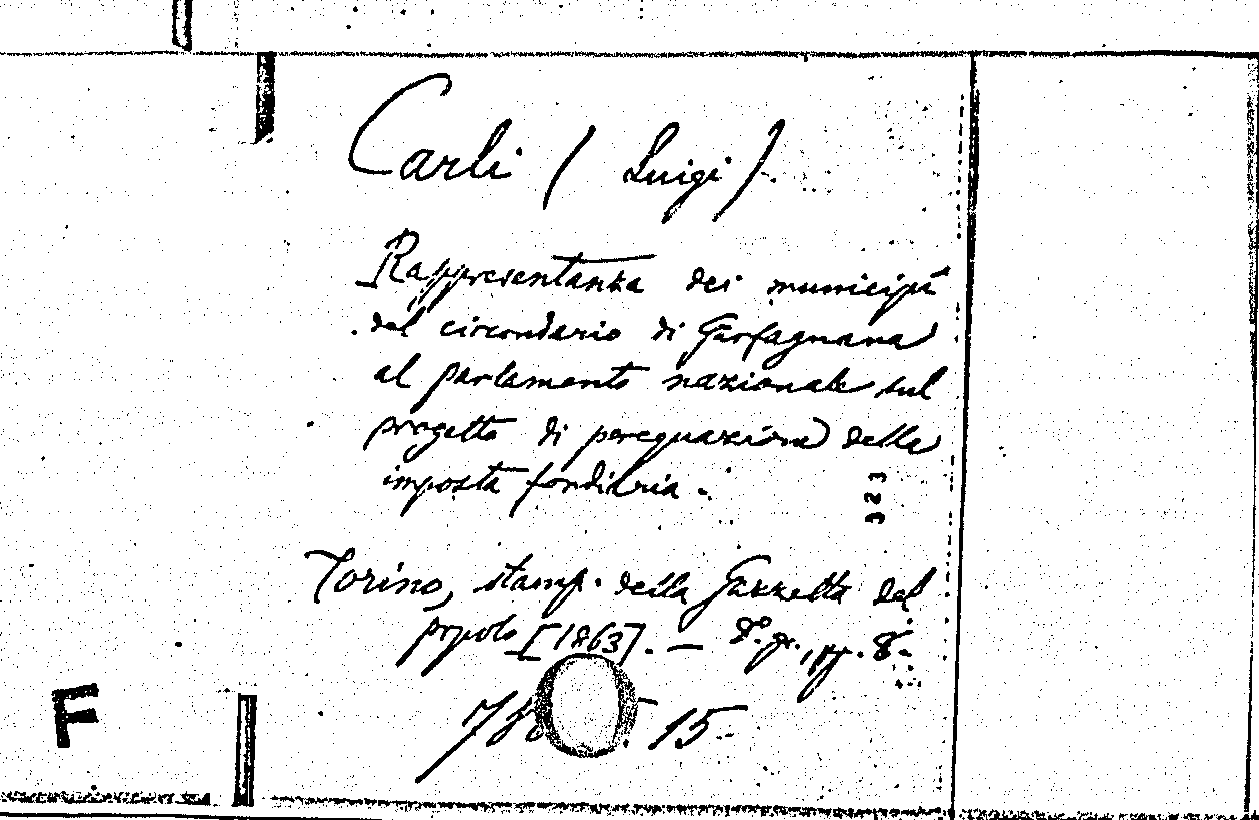 Carli (Luigi).
Rappresentanza dei municipii
del circondario di Garfagnana
al parlamento nazionale sul
progetto di perequazione della
imposta fondiaria.
323
Torino, stamp. della Gazzetta del
popolo [1863]. — 8º. gr., pp. 8.
15.
F